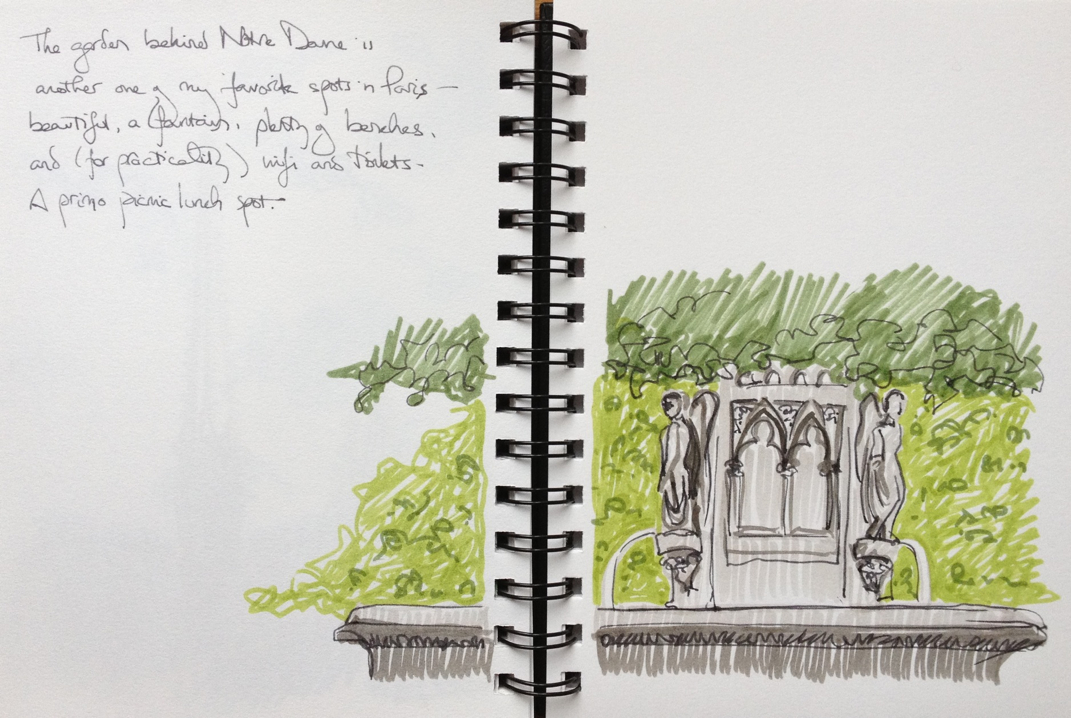 The garden behind Notre Dame is
another one of my favorite spots in Paris –
beautiful, a fountain, plenty of benches,
and (for practicality) wifi and toilets.
A primo picnic lunch spot.